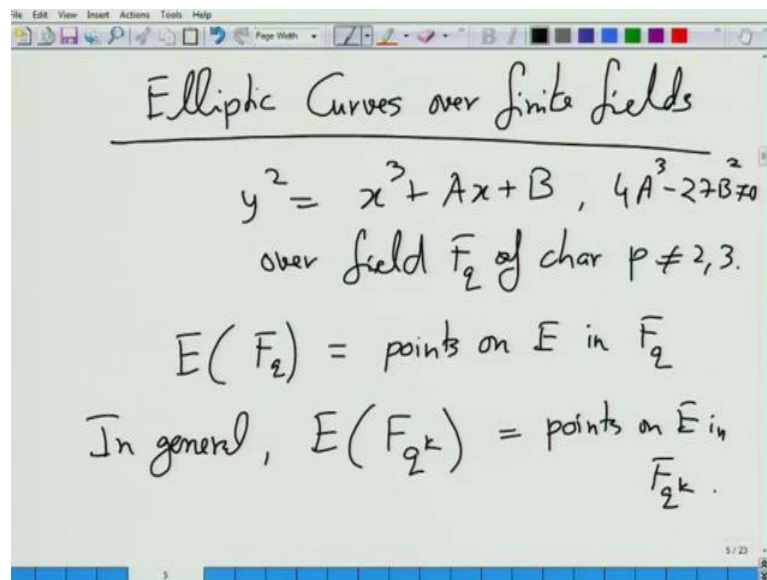 File Edit View Insert Actions Tools Help
Page Width
B I
Elliptic Curves over finite fields
y² = x³ + Ax + B, 4A³-27B²≠0
over field F_q of char p ≠ 2, 3.
E(F_q) = points on E in F_q
In general, E(F_q^k) = points on E in
F_q^k.
5 / 23
5